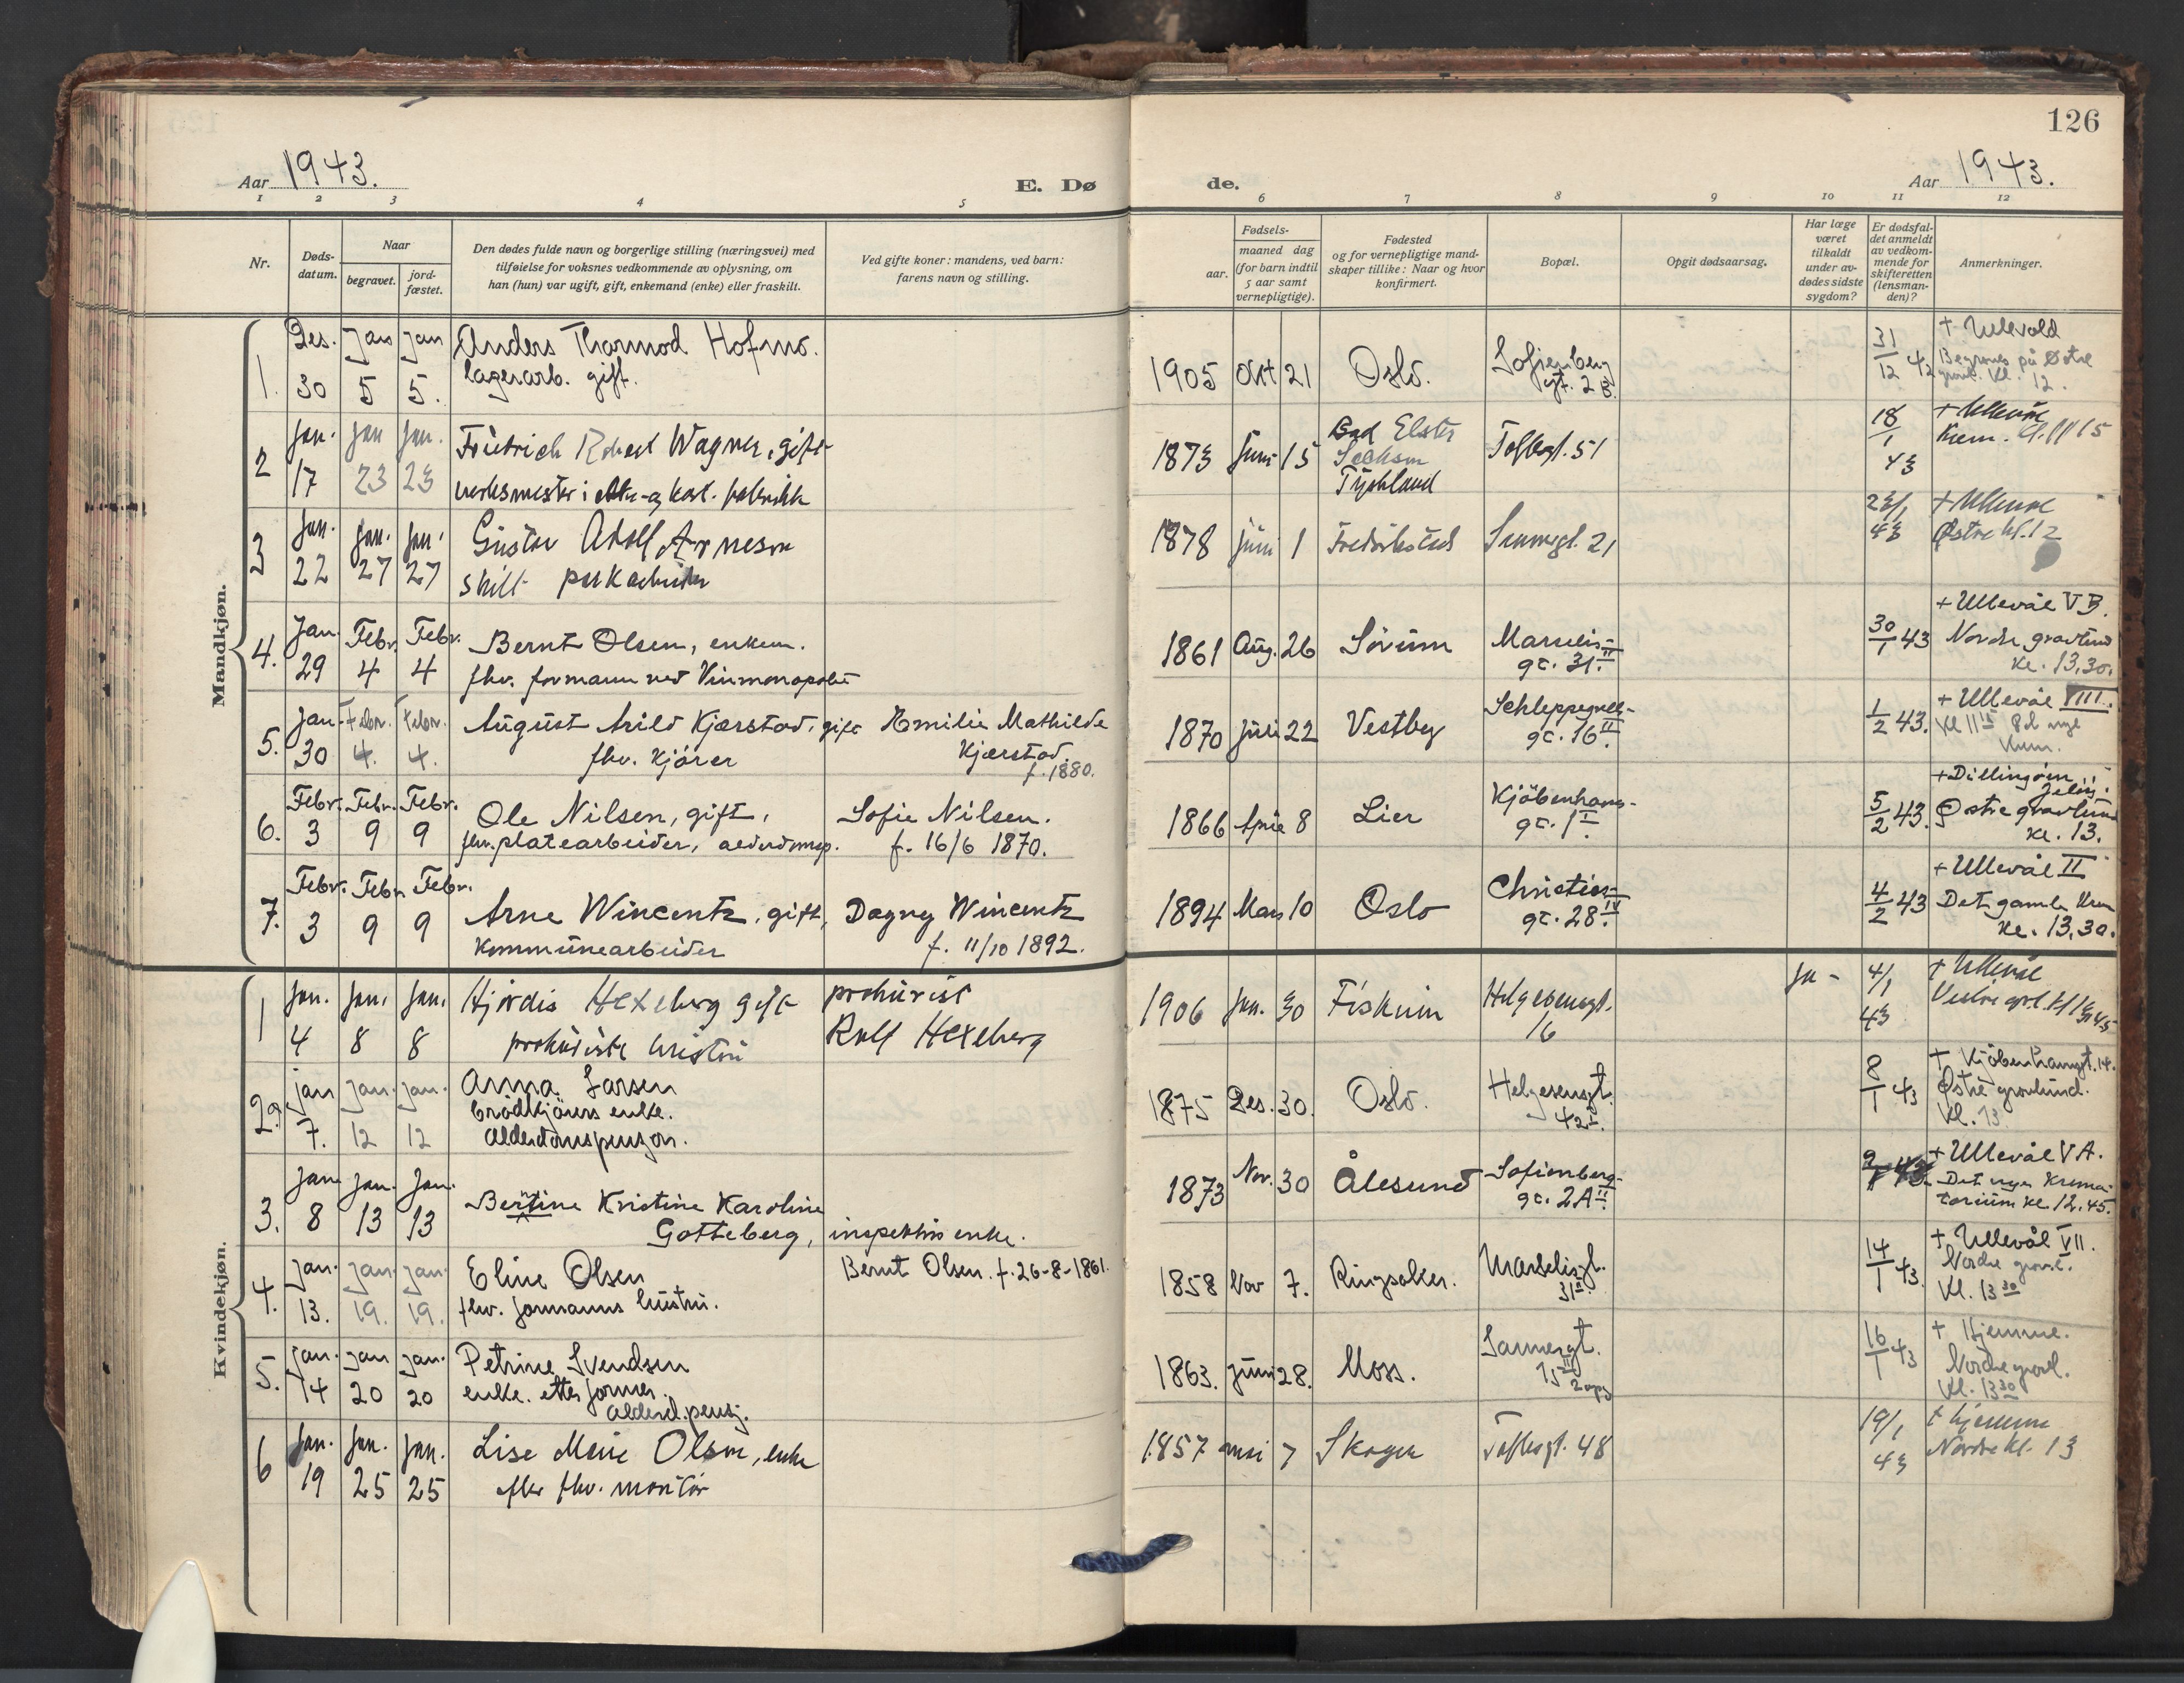 126
Aar 1943.
E. Dø
de.
Aar 1943.
1 2 3 4 5 6 7 8 9 10 11 12
Nr.
Døds-
datum.
Naar
begravet.
jord-
fæstet.
Den dødes fulde navn og borgerlige stilling (næringsvei) med
tilføielse for voksnes vedkommende av oplysning, om
han (hun) var ugift, gift, enkemand (enke) eller fraskilt.
Ved gifte koner: mandens, ved barn:
farens navn og stilling.
Fødsels-
aar.
maaned dag
(for barn indtil
5 aar samt
vernepligtige).
Fødested
og for vernepligtige mand-
skaper tillike: Naar og hvor
konfirmert.
Bopæl.
Opgit dødsaarsag.
Har læge
været
tilkaldt
under av-
dødes sidste
sygdom?
Er dødsfal-
det anmeldt
av vedkom-
mende for
skifteretten
(lensman-
den)?
Anmerkninger.
Mandkjøn.
1. Des. 30 Jan 5 Jan 5. Anders Thormod Hofmo.
lagerarb. gift.
1905 Okt 21 Oslo. Sofienberg
gt. 2 B.
31/12 42
+ Ullevold
Begraves på Østre
gravl. kl. 12.
2 Jan. 17 Jan 23 Jan. 23 Friedrich Robert Wagner, gift
verksmester i
1873 Juni 15 Bad Elster
Tyskland
Toftesgt. 51
18/1 43
+ Ullevål
Krem.
3 Jan. 22 Jan. 27 Jan. 27 Gustav Adolf Arnesen
skilt parkarbeider
1878 Juni 1 Fredrikstad Sannergt. 21
23/1 43
+ Ullevål
Østre kl. 12
4. Jan. 29 Febr. 4 Febr. 4 Bernt Olsen, enkem.
fhv. formann ved Vinmonopolet
1861 Aug. 26 Sørum Marselis-
gt. 31 II
30/1 43
+ Ullevål V B.
Nordre gravlund
kl. 13,30.
5. Jan. 30 Febr. 4. Febr. 4. August Arild Kjærstad, gift
fhv. kjører
Emilie Mathilde
Kjærstad.
f. 1880.
1870 Juli 22 Vestby Schleppegrells-
gt. 16 II.
1/2 43.
+ Ullevål VIII.
Kl 11 15 nye
krem.
6. Febr. 3 Febr. 9 Febr. 9 Ole Nilsen, gift,
fhv. platearbeider,
Sofie Nilsen.
f. 16/6 1870.
1866 April 8 Lier Kjøbenhavns-
gt. 1 I.
5/2 43.
+ Dillingøen
Jeløy.
Østre gravlund
kl. 13.
7. Febr. 3 Febr. 9 Febr. 9 Arne Wincentz, gift,
kommunearbeider
Dagny Wincentz
f. 11/10 1892.
1894 Mars 10 Oslo Christies-
gt. 28 IV.
4/2 43
+ Ullevål II
Det gamle Krem
kl. 13,30.
Kvindekjøn.
1 Jan. 4 Jan. 8 Jan. 8 Hjørdis Hexeberg gift
prokurists hustru
prokurist
Rolf Hexeberg
1906 Jan. 30 Fiskum Helgesensgt.
16
Ja -
4/1 43
+ Ullevål
Vestre grl. kl 13 45
2. Jan 7. Jan. 12 Jan. 12 Anna Larsen
brødkjørers enke.
Alderdomspensjon.
1875 Des. 30. Oslo. Helgesensgt.
42 I.
8/1 43
+ Kjøbenhavngt. 14.
Østre gravlund.
Kl. 13
3. Jan 8 Jan. 13 Jan. 13 Berntine Kristine Karoline
Gotteberg, inspektørs enke.
1873 Nov. 30 Ålesund Sofienberg-
gt. 2A II.
9/1 43
+ Ullevål V A.
Det nye Krema-
torium kl. 12.45.
4. Jan. 13. Jan. 19. Jan. 19. Eline Olsen
fhv. formanns hustru.
Bernt Olsen. f. 26-8-1861.
1858 Nov 7. Ringsaker. Marselisgt.
31 II.
14/1 43.
+ Ullevål VII.
Nordre gravl.
Kl. 13 30
5. Jan. 14 Jan 20 Jan. 20 Petrine Svendsen
enke. etter former.
alderd.pensj.
1863. Juni 28. Moss. Sannergt.
15 III
2 opg
16/1 43
+ Hjemme.
Nordre gravl.
Kl. 13 30
6 Jan. 19 Jan. 25 Jan. 25 Lise Marie Olsen, enke
efter fhv. montør
1857 mai 7 Skoger Toftesgt. 48
19/1 43
+ hjemme
Nordre kl. 13